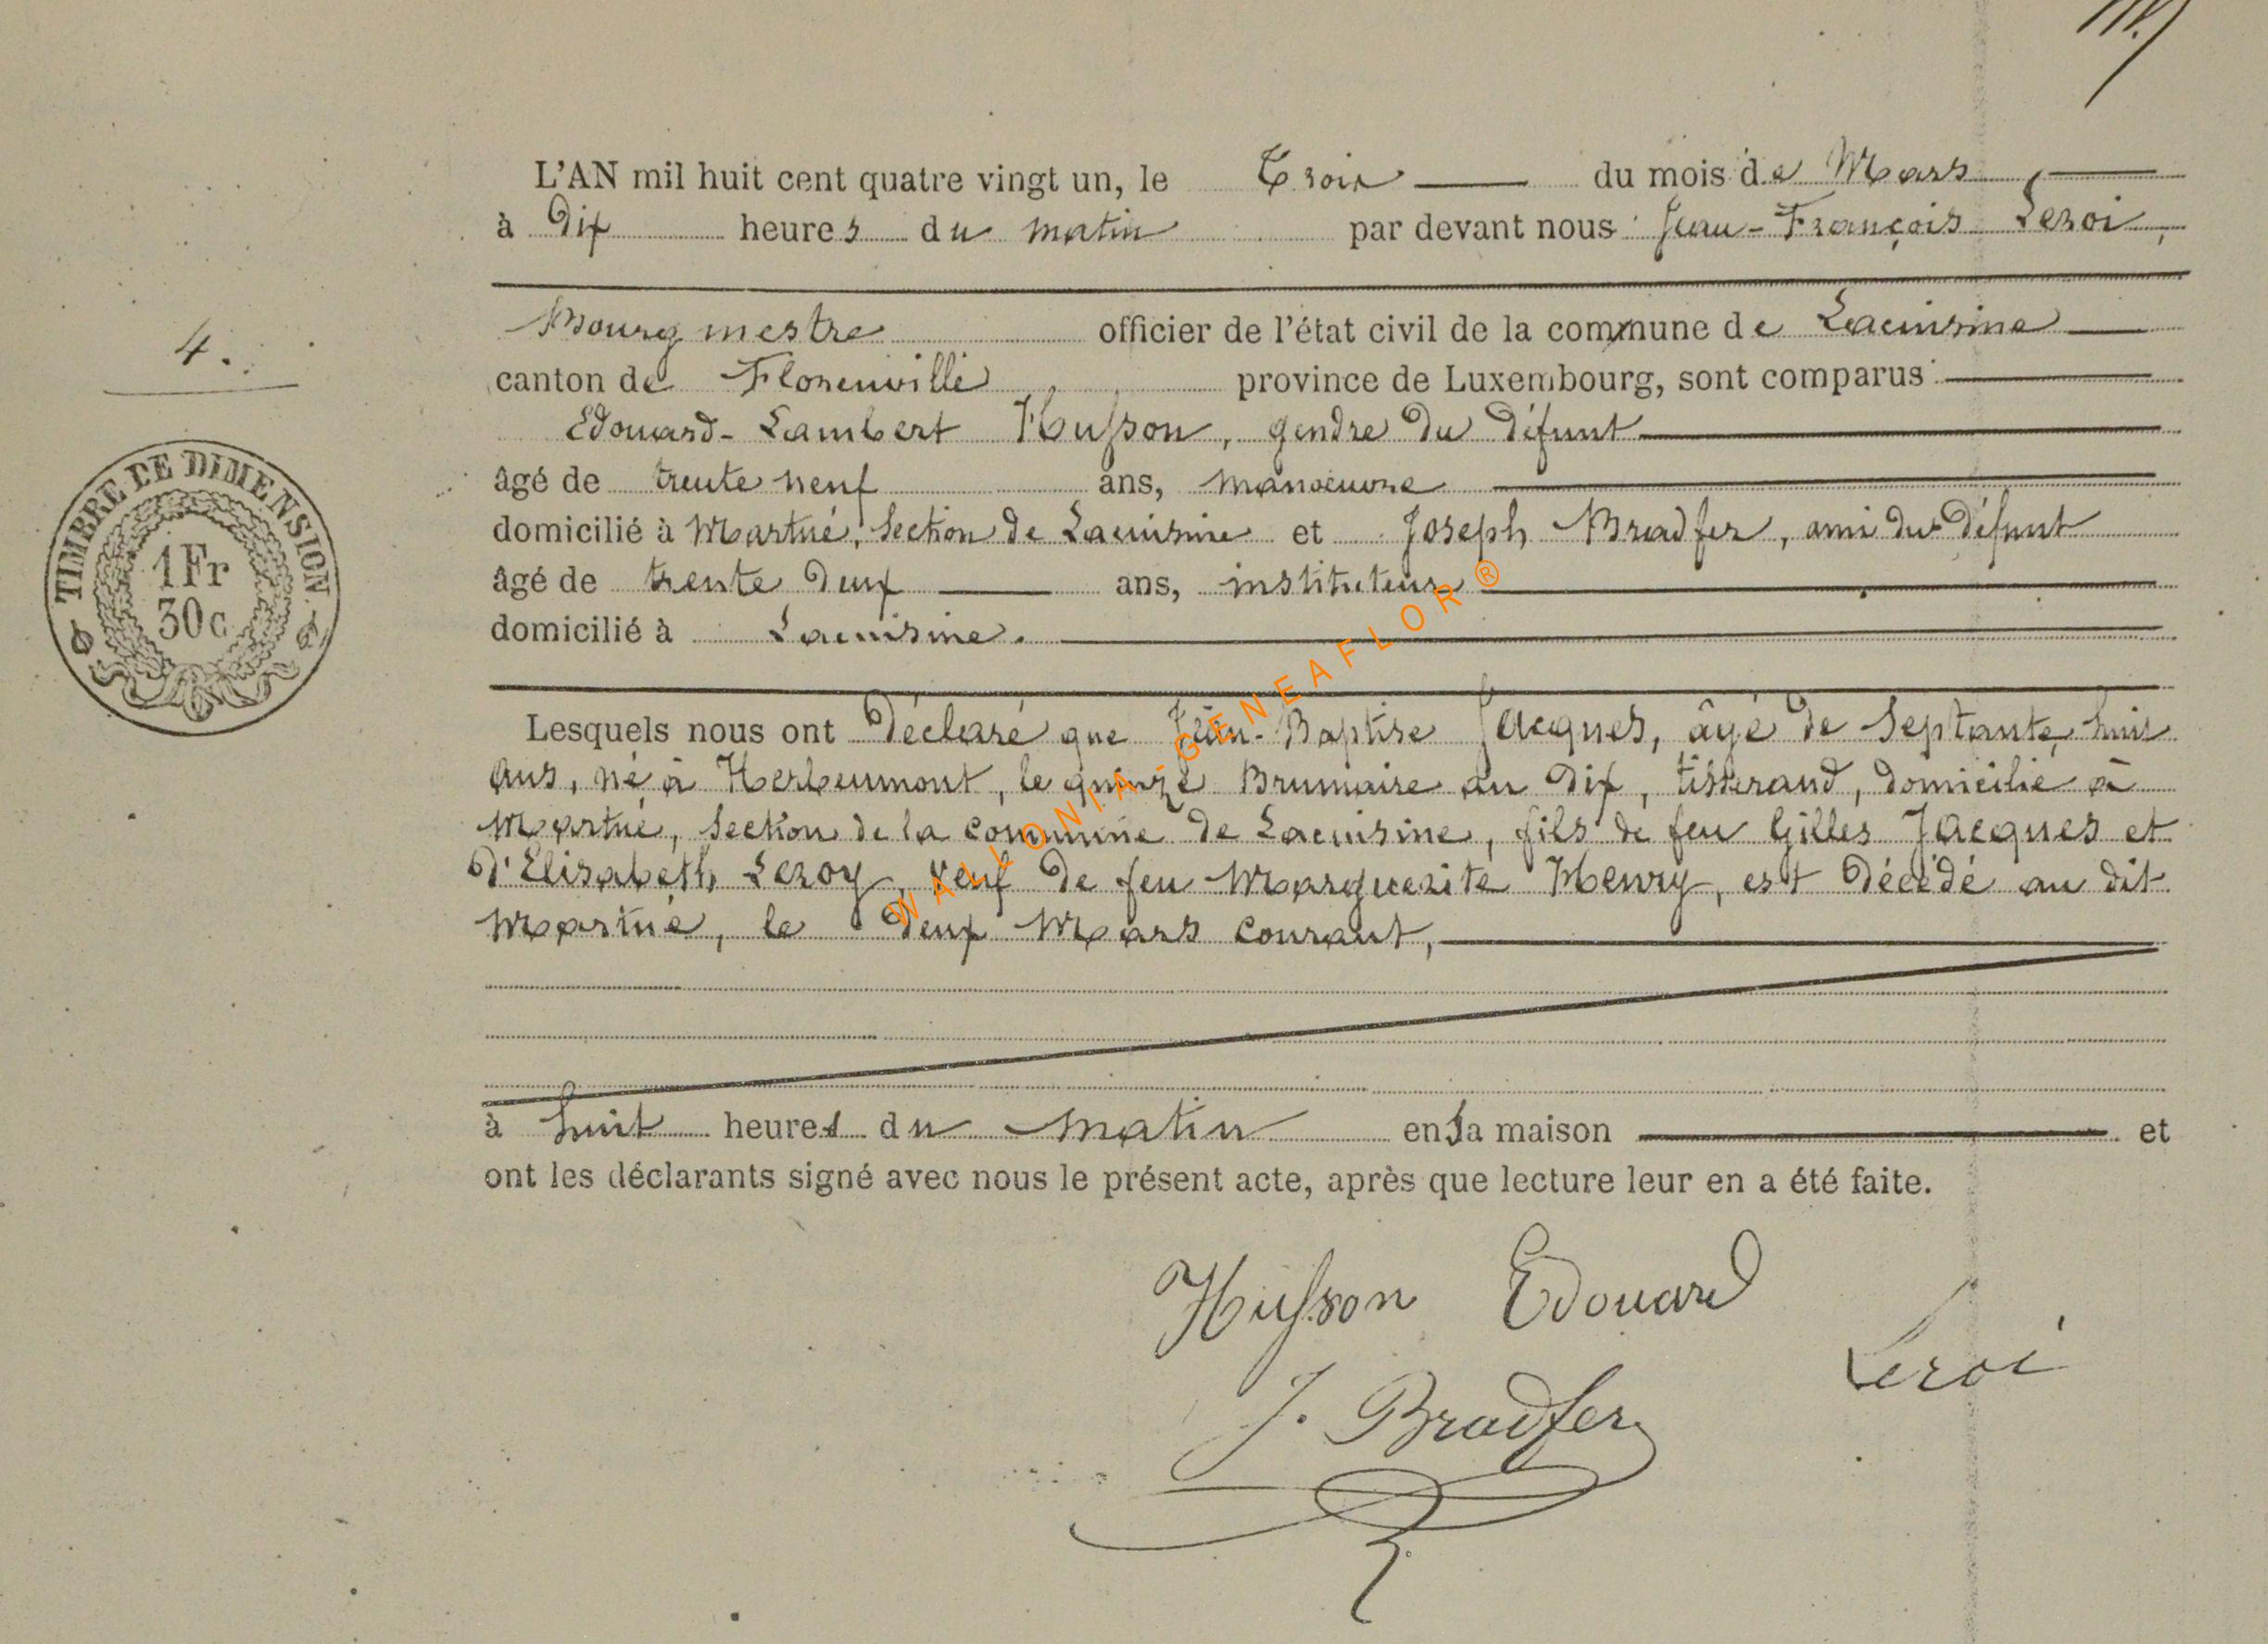 L'AN mil huit cent quatre vingt un, le Trois du mois de Mars
à Dix heures du matin par devant nous Jean-François Leroi,
Bourgmestre officier de l'état civil de la commune de Lacuisine
canton de Florenville province de Luxembourg, sont comparus
Edouard-Lambert Husson, gendre du défunt
âgé de trente neuf ans, manoeuvre
domicilié à Martué, section de Lacuisine et Joseph Bradfer, ami du défunt
âgé de trente deux ans, instituteur
domicilié à Lacuisine.
Lesquels nous ont déclaré que Jean-Baptise Jacques, âgé de septante huit
ans, né à Herbeumont, le quinze Brumaire an dix, tisserand, domicilié à
Martué, section de la commune de Lacuisine, fils de feu Gilles Jacques et
d'Elisabeth Leroy, veuf de feu Marguerite Henry, est décédé au dit
Martué, le deux Mars courant,
à huit heures du matin en sa maison et
ont les déclarants signé avec nous le présent acte, après que lecture leur en a été faite.
Husson Edouard
Leroi
J. Bradfer
4.
TIMBRE DE DIMENSION
1 Fr
30c
WALLONIA-GENEAFLOR®